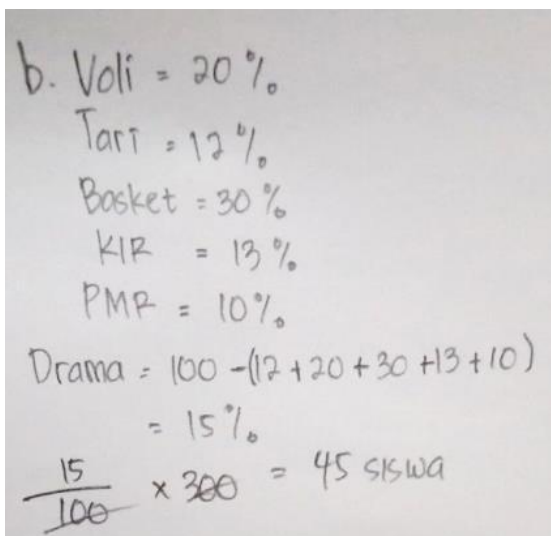 b. Voli = 20%
Tari = 12%
Basket = 30%
KIR = 13%
PMR = 10%
Drama = 100 - (12 + 20 + 30 + 13 + 10)
= 15%
15/100 x 300 = 45 siswa